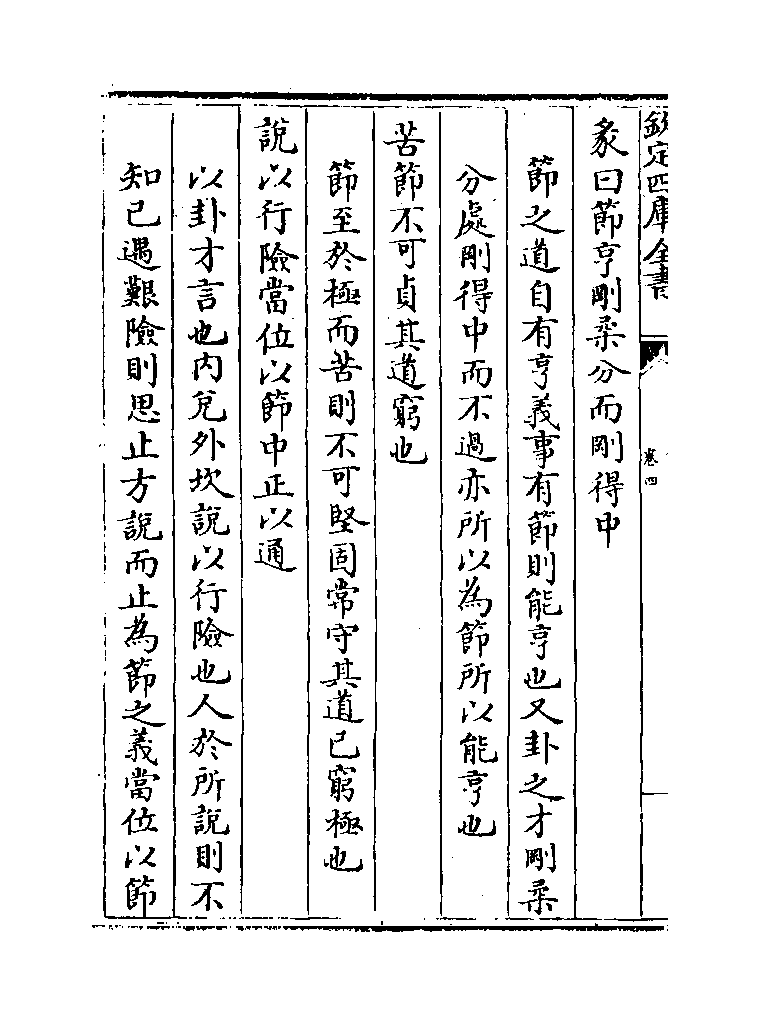 欽定四庫全書
卷四
彖曰節亨剛柔分而剛得中
節之道自有亨義事有節則能亨也又卦之才剛柔
分處剛得中而不過亦所以為節所以能亨也
苦節不可貞其道窮也
節至於極而苦則不可堅固常守其道已窮極也
說以行險當位以節中正以通
以卦才言也内兌外坎說以行險也人於所說則不
知已遇艱險則思止方說而止為節之義當位以節